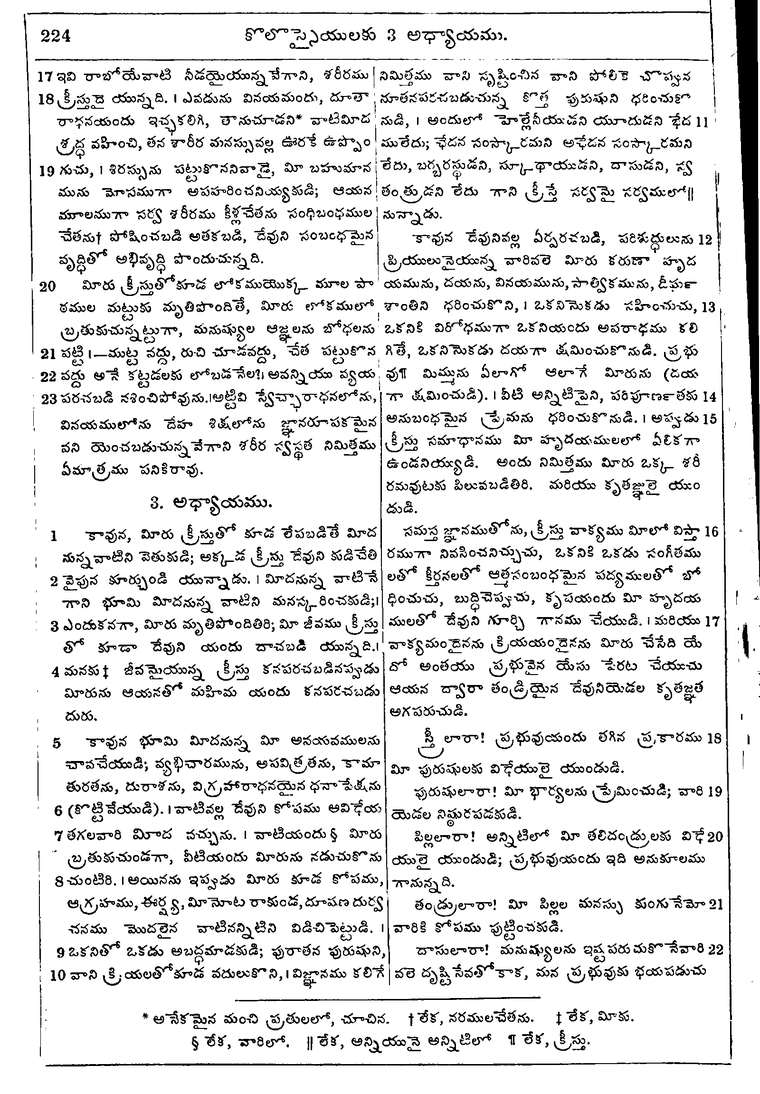 224 కొలొస్సైయులకు 3 అధ్యాయము.
17 ఇవి రాబోయేవాటి నీడయైయున్న వేగాని, శరీరము
18 క్రీస్తుదై యున్నది. । ఎవడును వినయమందు, దూతా
రాధనయందు ఇచ్ఛకలిగి, తానుచూడని* వాటిమీద
శ్రద్ధ వహించి, తన శారీర మనస్సువల్ల ఊరకే ఉప్పొం
19 గుచు, । శిరస్సును పట్టుకొననివాడై, మీ బహుమాన
మును మోసముగా అపహరించనియ్యకుడి; ఆయన
మూలముగా సర్వ శరీరము కీళ్లచేతను సంధిబంధముల
చేతను† పోషించబడి అతకబడి, దేవుని సంబంధమైన
వృద్ధితో అభివృద్ధి పొందుచున్నది.
20 మీరు క్రీస్తుతోకూడ లోకముయొక్క మూల పా
ఠముల మట్టుకు మృతిపొందితే, మీరు లోకములో
బ్రతుకుచున్నట్టుగా, మనుష్యుల ఆజ్ఞలను బోధలను
21 పట్టి ।—ముట్ట వద్దు, రుచి చూడవద్దు, చేత పట్టుకొన
22 వద్దు అనే కట్టడలకు లోబడనేల?। అవన్నియు వ్యయ
23 పరచబడి నశించిపోవును.।అట్టివి స్వేచ్ఛారాధనలోను,
వినయములోను దేహ శిక్షలోను జ్ఞానరూపకమైన
వని యెంచబడుచున్నవేగాని శరీర స్వస్థత నిమిత్తము
ఏమాత్రము పనికిరావు.
3. అధ్యాయము.
1 కావున, మీరు క్రీస్తుతో కూడ లేపబడితే మీద
నున్నవాటిని వెతుకుడి; అక్కడ క్రీస్తు దేవుని కుడిచేతి
2 వైపున కూర్చుండి యున్నాడు. । మీదనున్న వాటినే
గాని భూమి మీదనున్న వాటిని మనస్కరించకుడి;।
3 ఎందుకనగా, మీరు మృతిపోందితిరి; మీ జీవము క్రీస్తు
తో కూడా దేవుని యందు దాచబడి యున్నది.।
4 మనకు‡ జీవమైయున్న క్రీస్తు కనపరచబడినప్పుడు
మీరును ఆయనతో మహిమ యందు కనపరచబడు
దురు.
5 కావున భూమి మీదనున్న మీ అవయవములను
చావచేయుడి; వ్యభిచారమును, అపవిత్రతను, కామా
తురతను, దురాశను, విగ్రహారాధనయైన ధనాపేక్షను
6 (కొట్టివేయుడి). । వాటివల్ల దేవుని కోపము అవిధేయ
7 తగలవారి మీద వచ్చును. । వాటియందు§ మీరు
బ్రతుకుచుండగా, వీటియందు మీరును నడుచుకొను
8 చుంటిరి. । అయినను ఇప్పుడు మీరు కూడ కోపము,
ఆగ్రహము, ఈర్ష్య, మీనోట రాకుండ, దూషణ దుర్వ
చనము మొదలైన వాటినన్నిటిని విడిచిపెట్టుడి. ।
9 ఒకనితో ఒకడు అబద్ధమాడకుడి; పురాతన పురుషుని,
10 వాని క్రియలతోకూడ వదులుకొని, । విజ్ఞానము కలిగే
నిమిత్తము వాని సృష్టించిన వాని పోలికె చొప్పున
నూతనపరచబడుచున్న కొత్త పురుషుని ధరించుకొ
నుడి, । అందులో హెల్లేనీయుడని యూదుడని ఛేద 11
ములేదు; ఛేదన సంస్కారమని అఛేదన సంస్కారమని
లేదు, బర్బరస్థుడని, స్కూథాయుడని, దాసుడని, స్వ
తంత్రుడని లేదు గాని క్రీస్తే సర్వమై సర్వములో‖
నున్నాడు.
కావున దేవునివల్ల ఏర్పరచబడి, పరిశుద్ధులును 12
ప్రియులునైయున్న వారివలె మీరు కరుణా హృద
యమును, దయను, వినయమును, సాత్వికమును, దీర్ఘ
శాంతిని ధరించుకొని, । ఒకనినొకడు సహించుచు, 13
ఒకనికి విరోధముగా ఒకనియందు అపరాధము కలి
గితే, ఒకనినొకడు దయగా క్షమించుకొనుడి. ప్రభు
వు¶ మిమ్మును ఏలాగో ఆలాగే మీరును (దయ
గా క్షమించుడి). । వీటి అన్నిటిపైని, పరిపూర్ణతకు 14
అనుబంధమైన ప్రేమను ధరించుకొనుడి. । అప్పుడు 15
క్రీస్తు సమాధానము మీ హృదయములలో ఏలికగా
ఉండనియ్యుడి. అందు నిమిత్తము మీరు ఒక్క శరీ
రమవుటకు పిలువబడితిరి. మరియు కృతజ్ఞులై యుం
డుడి.
సమస్త జ్ఞానముతోను, క్రీస్తు వాక్యము మీలో విస్తా 16
రముగా నివసించనిచ్చుచు, ఒకనికి ఒకడు సంగీతము
లతో కీర్తనలతో ఆత్మసంబంధమైన పద్యములతో బో
ధించుచు, బుద్ధిచెప్పుచు, కృపయందు మీ హృదయ
ములతో దేవుని గూర్చి గానము చేయుడి. । మరియు 17
వాక్యమందైనను క్రియయందైనను మీరు చేసేది యే
దో అంతయు ప్రభువైన యేసు పేరట చేయుచు
ఆయన ద్వారా తండ్రియైన దేవునియెడల కృతజ్ఞత
అగపరుచుడి.
స్త్రీలారా! ప్రభువుయందు తగిన ప్రకారము 18
మీ పురుషులకు విధేయులై యుండుడి.
పురుషులారా! మీ భార్యలను ప్రేమించుడి; వారి 19
యెడల నిష్ఠురపడకుడి.
పిల్లలారా! అన్నిటిలో మీ తలిదండ్రులకు విధే 20
యులై యుండుడి; ప్రభువుయందు ఇది అనుకూలము
గానున్నది.
తండ్రులారా! మీ పిల్లల మనస్సు కుంగునేమో 21
వారికి కోపము పుట్టించకుడి.
దాసులారా! మనుష్యులను ఇష్టపరుచుకొనేవారి 22
వలె దృష్టిసేవతోకాక, మన ప్రభువుకు భయపడుచు
* అనేకమైన మంచి ప్రతులలో, చూచిన. † లేక, నరములచేతను. ‡ లేక, మీకు.
§ లేక, వారిలో. ‖ లేక, అన్నియునై అన్నిటిలో ¶ లేక, క్రీస్తు.